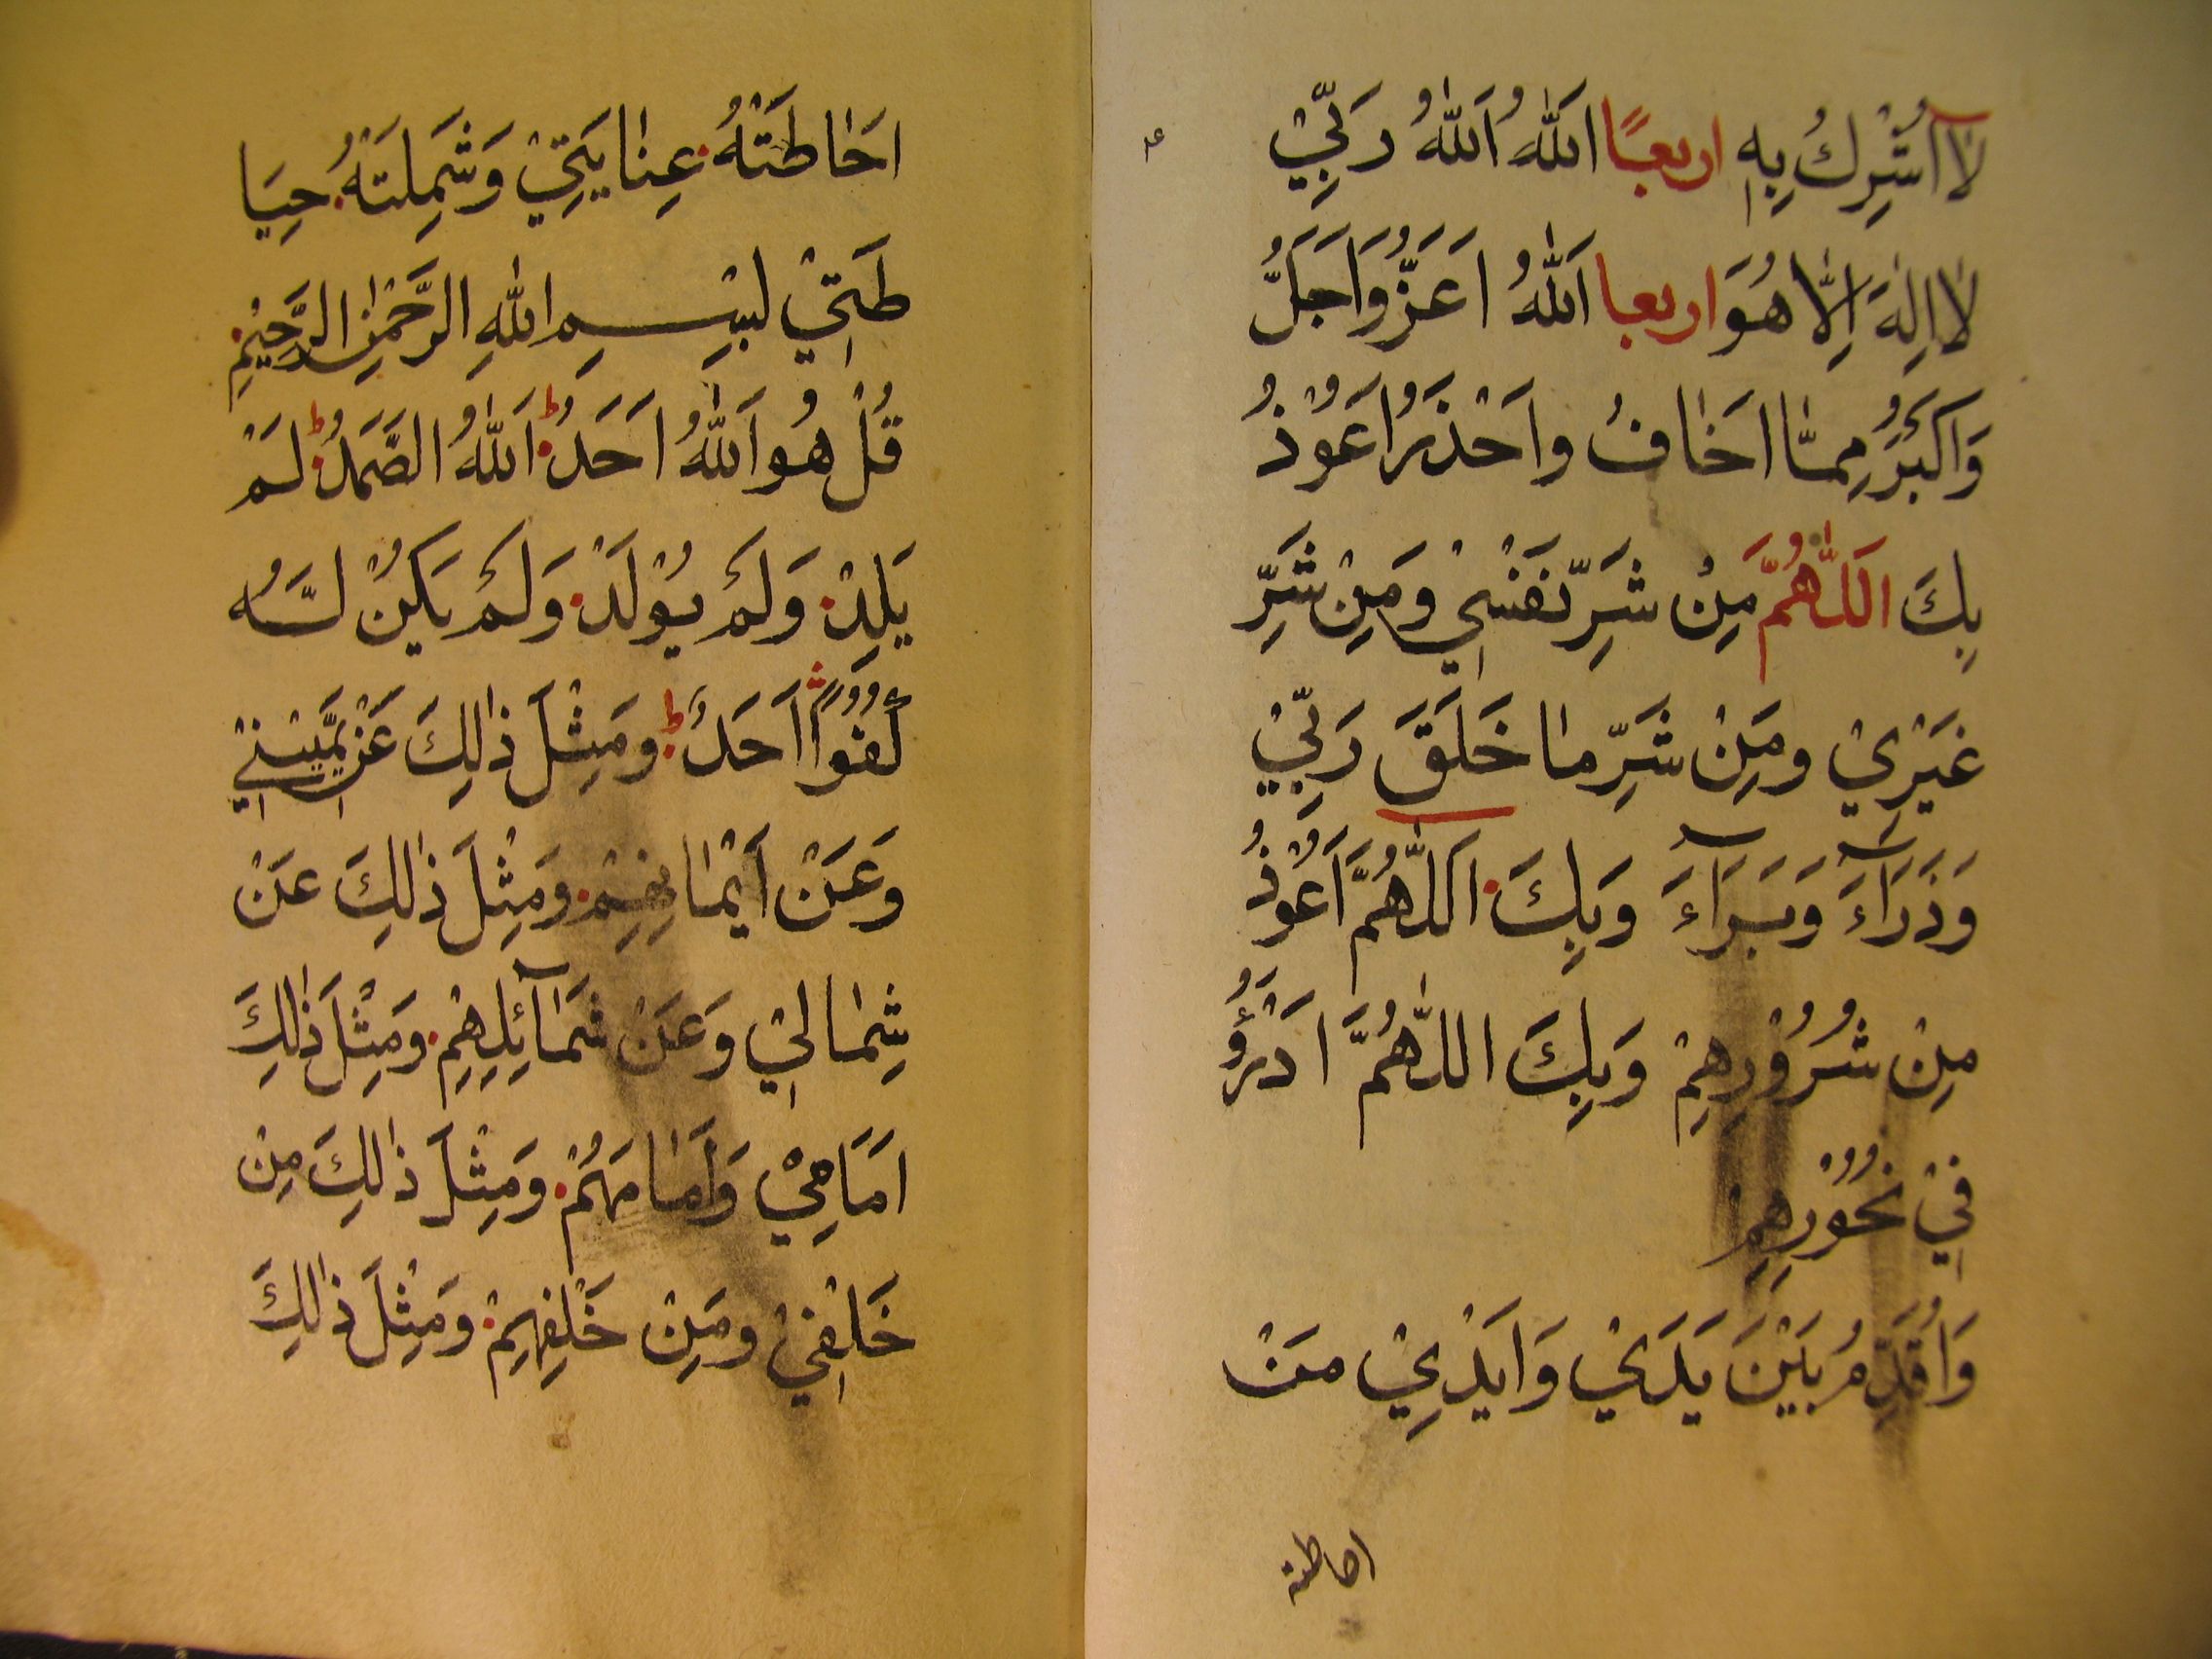 لَآ اُشْرِكُ بِهٖ اربعًا اَللّٰهُ اَللّٰهُ رَبِّيْ
لَا اِلٰهَ اِلَّا هُوَ اربعا اَللّٰهُ اَعَزُّ وَاَجَلُّ
وَاَكْبَرُ مِمَّا اَخَافُ واَحْذَرُ اَعُوْذُ
بِكَ اَللّٰهُمَّ مِنْ شَرِّ نَفْسِيْ ومِنْ شَرِّ
غَيْرِيْ ومِنْ شَرِّ ما خَلَقَ رَبِّيْ
وَذَرَآءَ وَبَرَآءَ وَبِكَ اَللّٰهُمَّ اَعُوْذُ
مِنْ شُرُوْرِهِمْ وَبِكَ اللّٰهُمَّ اَدْرَؤُ
فِيْ نُحُوْرِهِمْ
وَاُقَدِّمُ بَيْنَ يَدَيْ وَاَيْدِيْ مَنْ
احاطته
اَحَاطَتْهُ عِنَايَتِيْ وَشَمِلَتْهُ حِيَا
طَتِيْ بِسْمِ اللّٰهِ الرَّحْمٰنِ الرَّحِيْمِ
قُلْ هُوَ اَللّٰهُ اَحَدٌ اَللّٰهُ الصَّمَدُ لَمْ
يَلِدْ وَلَمْ يُوْلَدْ وَلَمْ يَكُنْ لَّهُ
كُفُوًا اَحَدٌ ومِثْلَ ذٰلِكَ عَنْ يَّمِيْنِيْ
وَعَنْ اَيْمَانِهِمْ ومِثْلَ ذٰلِكَ عَنْ
شِمَالِيْ وَعَنْ شَمَآئِلِهِمْ ومِثْلَ ذٰلِكَ
اَمَامِيْ وَاَمَامَهُمْ ومِثْلَ ذٰلِكَ مِنْ
خَلْفِيْ ومِنْ خَلْفِهِمْ ومِثْلَ ذٰلِكَ